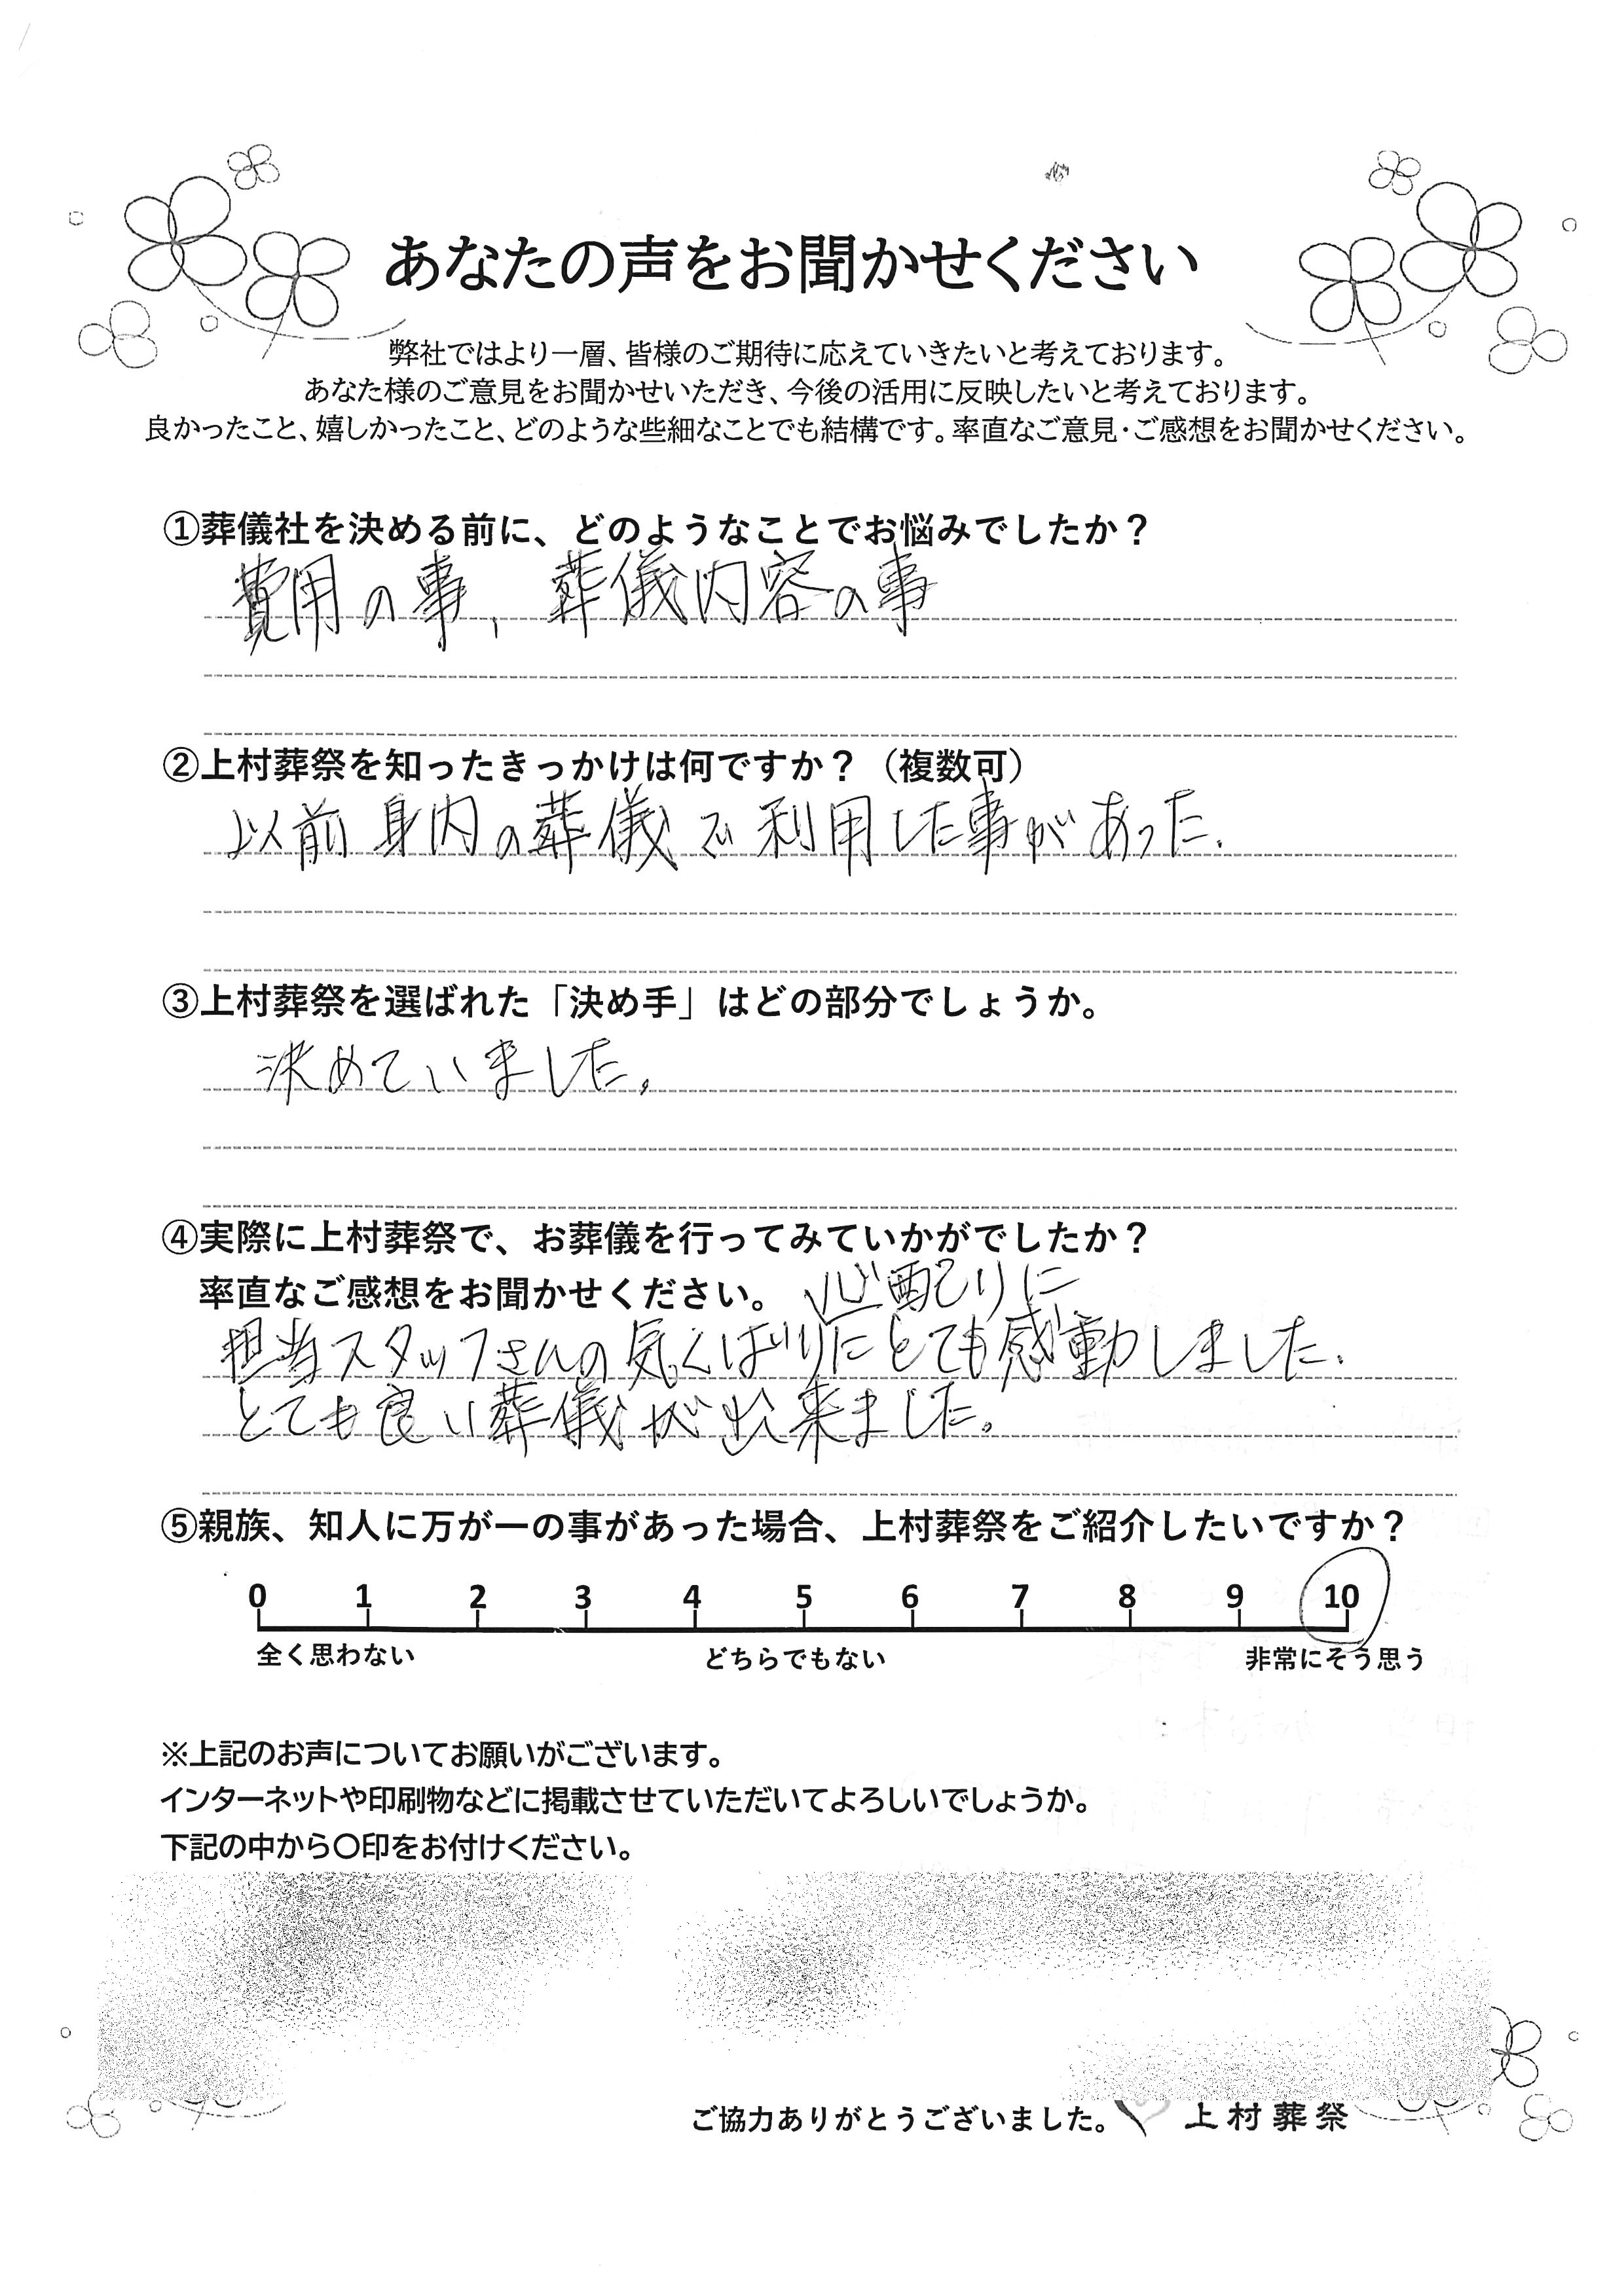 あなたの声をお聞かせください
弊社ではより一層、皆様のご期待に応えていきたいと考えております。
あなた様のご意見をお聞かせいただき、今後の活用に反映したいと考えております。
良かったこと、嬉しかったこと、どのような些細なことでも結構です。率直なご意見・ご感想をお聞かせください。
①葬儀社を決める前に、どのようなことでお悩みでしたか？
費用の事、葬儀内容の事
②上村葬祭を知ったきっかけは何ですか？（複数可）
以前身内の葬儀で利用した事があった.
③上村葬祭を選ばれた「決め手」はどの部分でしょうか。
決めていました。
④実際に上村葬祭で、お葬儀を行ってみていかがでしたか？
率直なご感想をお聞かせください。
心配りに
担当スタッフさんの気くばりにとても感動しました.
とても良い葬儀が出来ました。
⑤親族、知人に万が一の事があった場合、上村葬祭をご紹介したいですか？
0 1 2 3 4 5 6 7 8 9 10
全く思わない どちらでもない 非常にそう思う
※上記のお声についてお願いがございます。
インターネットや印刷物などに掲載させていただいてよろしいでしょうか。
下記の中から〇印をお付けください。
ご協力ありがとうございました。 上村葬祭